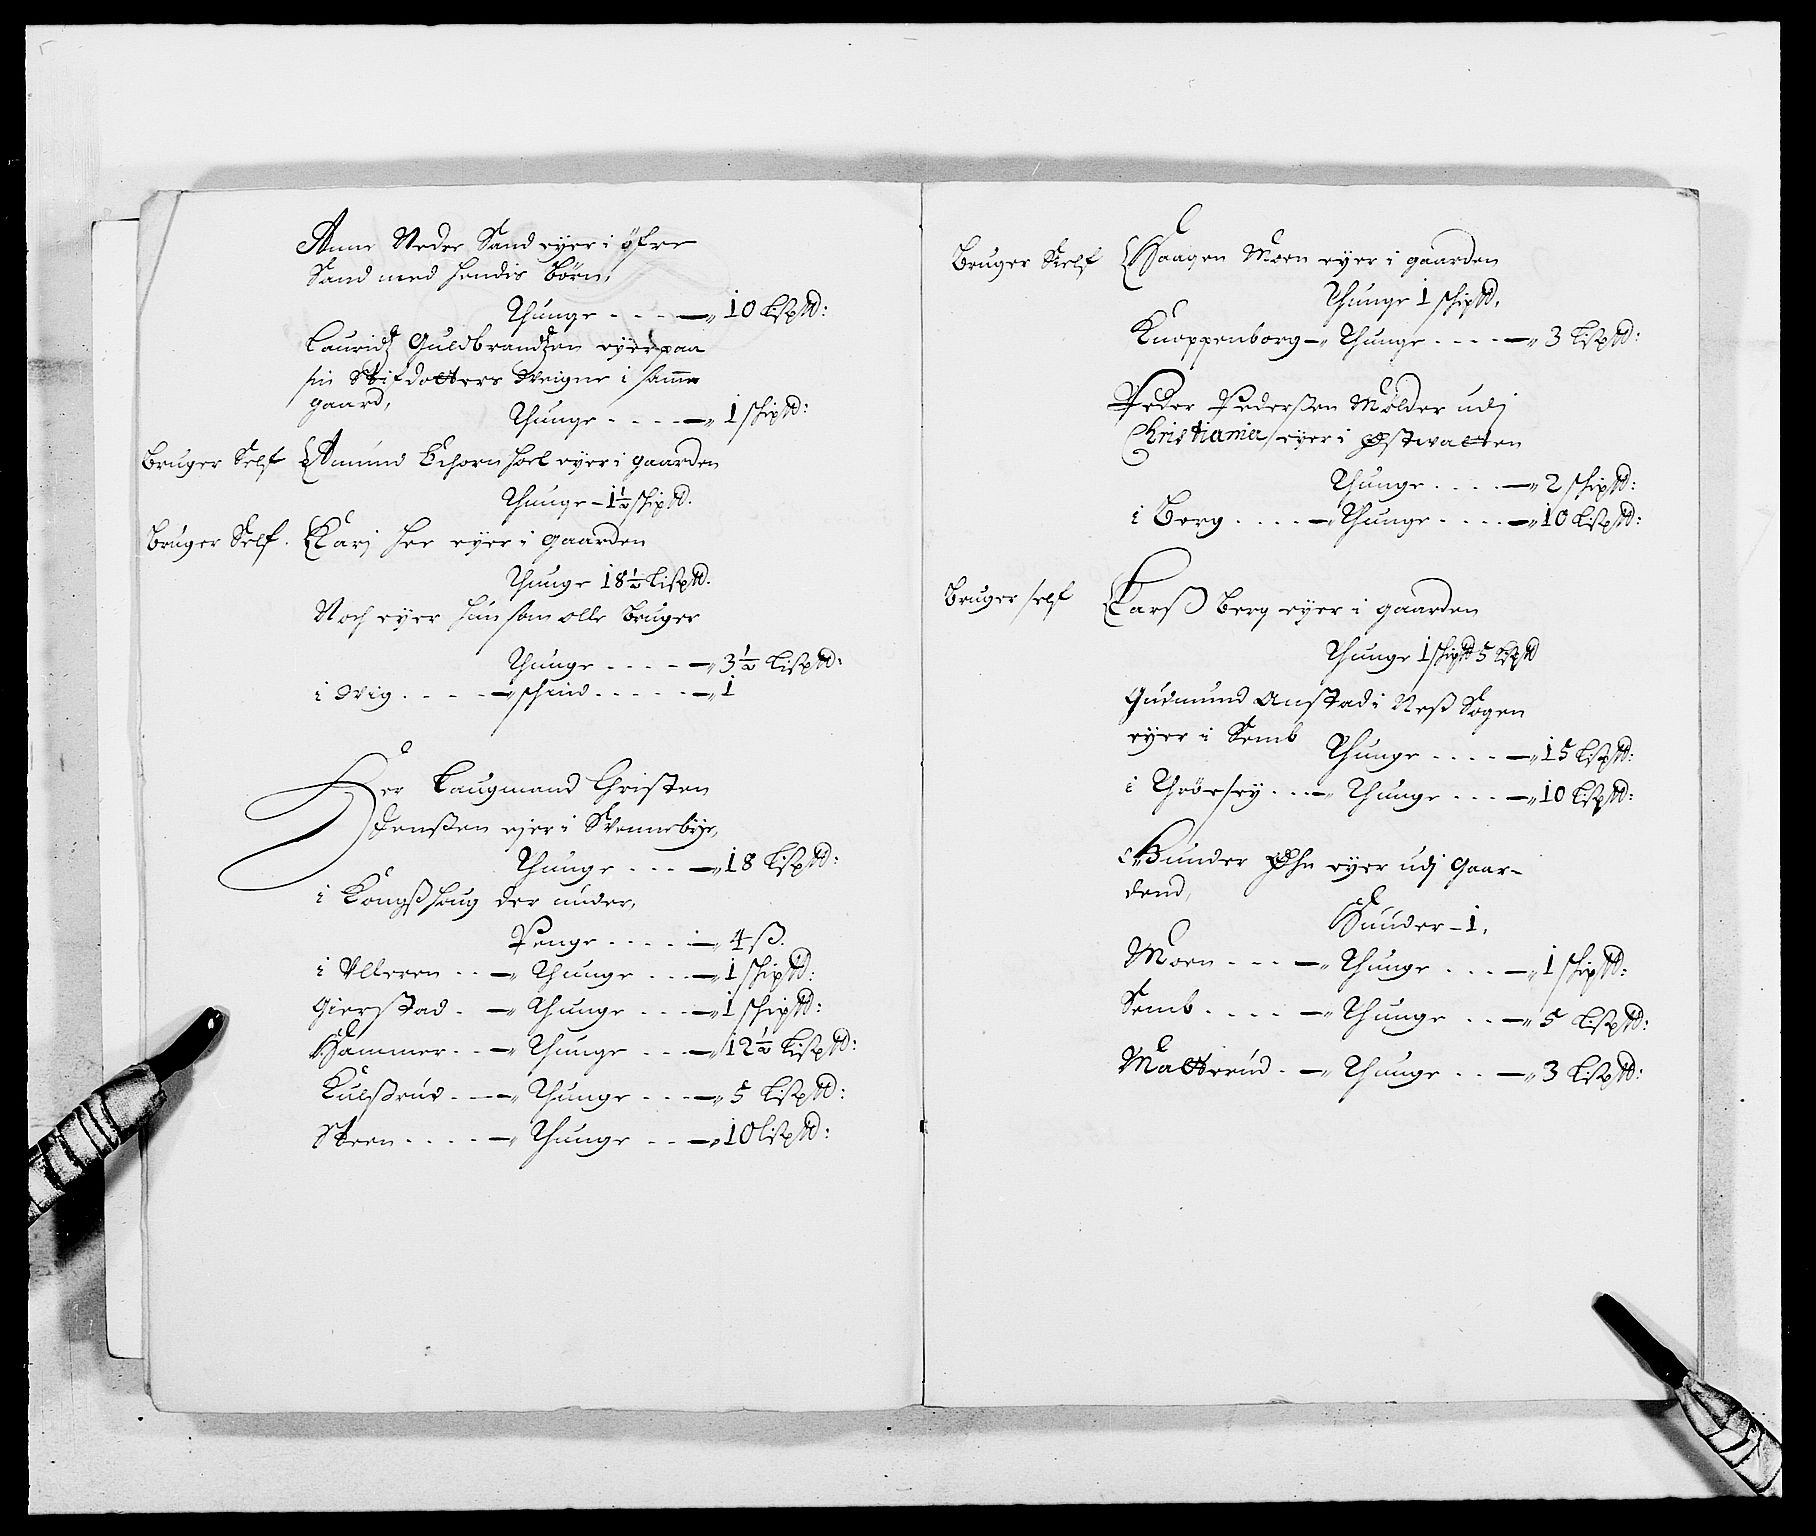 Anne Neder Sand eyer i öfre
Sand med hendis börn,
Thunge - - - — 10 Lispd:
Lauridtz Guldbrandtzen eyer paa
sin Stifdotters Vreigne i samme
gaard,
Thunge - - - — 1 skipd:
Bruger Self Amund Tehornhoel eyer i gaarden
Thunge - 1½ skipd.
Bruger Self. Karj Hee eyer i gaarden
Thunge 18½ Lispd.
Noch eyer hun som olle bruger
Thunge - - - - — 3½ Lispd:
i Vig - - - - — skind - - - - — 1
Her Laugmand Christen
Jenssen ejer i Svennebÿe,
Thunge - - - — 18 Lispd:
i Kongsshoug der under,
Penge - - - - — 4 ß.
i Ulleren - - — Thunge - - - — 1 skipd:
Gierstad - — Thunge - - - — 1 skipd:
Hammer - - — Thunge - - - — 12½ Lispd:
Kulssrud - - — Thunge - - - — 5 Lispd:
Steen - - - - — Thunge - - - — 10 lispd:
Bruger Self Haagen Moen eyer i gaarden
Thunge 1 skipd,
Knappenborg — Thunge - - - - — 3 Lispd:
Peder Pederssen Mölder udj
Christiania, eyer i Østwatten
Thunge - - - - — 2 skipd:
i Berg - - - - — Thunge - - - - — 10 Lispd:
Bruger self Larss Berg eyer i gaarden
Thunge 1 skipd 5 Lispd
Gudmund Anstad i Ness Sogen
eyer i Semb Thunge - - - - — 15 Lispd:
i Thöesey - - — Thunge - - - — 10 Lispd:
Gunder Øhn eyer udj Gaar-
dend,
Huuder - 1,
Moen - - - — Thunge - - - — 1 skipd:
Semb - - - - — Thunge - - — 5 Lispd:
Matterud - — Thunge - - — 3 Lispd: